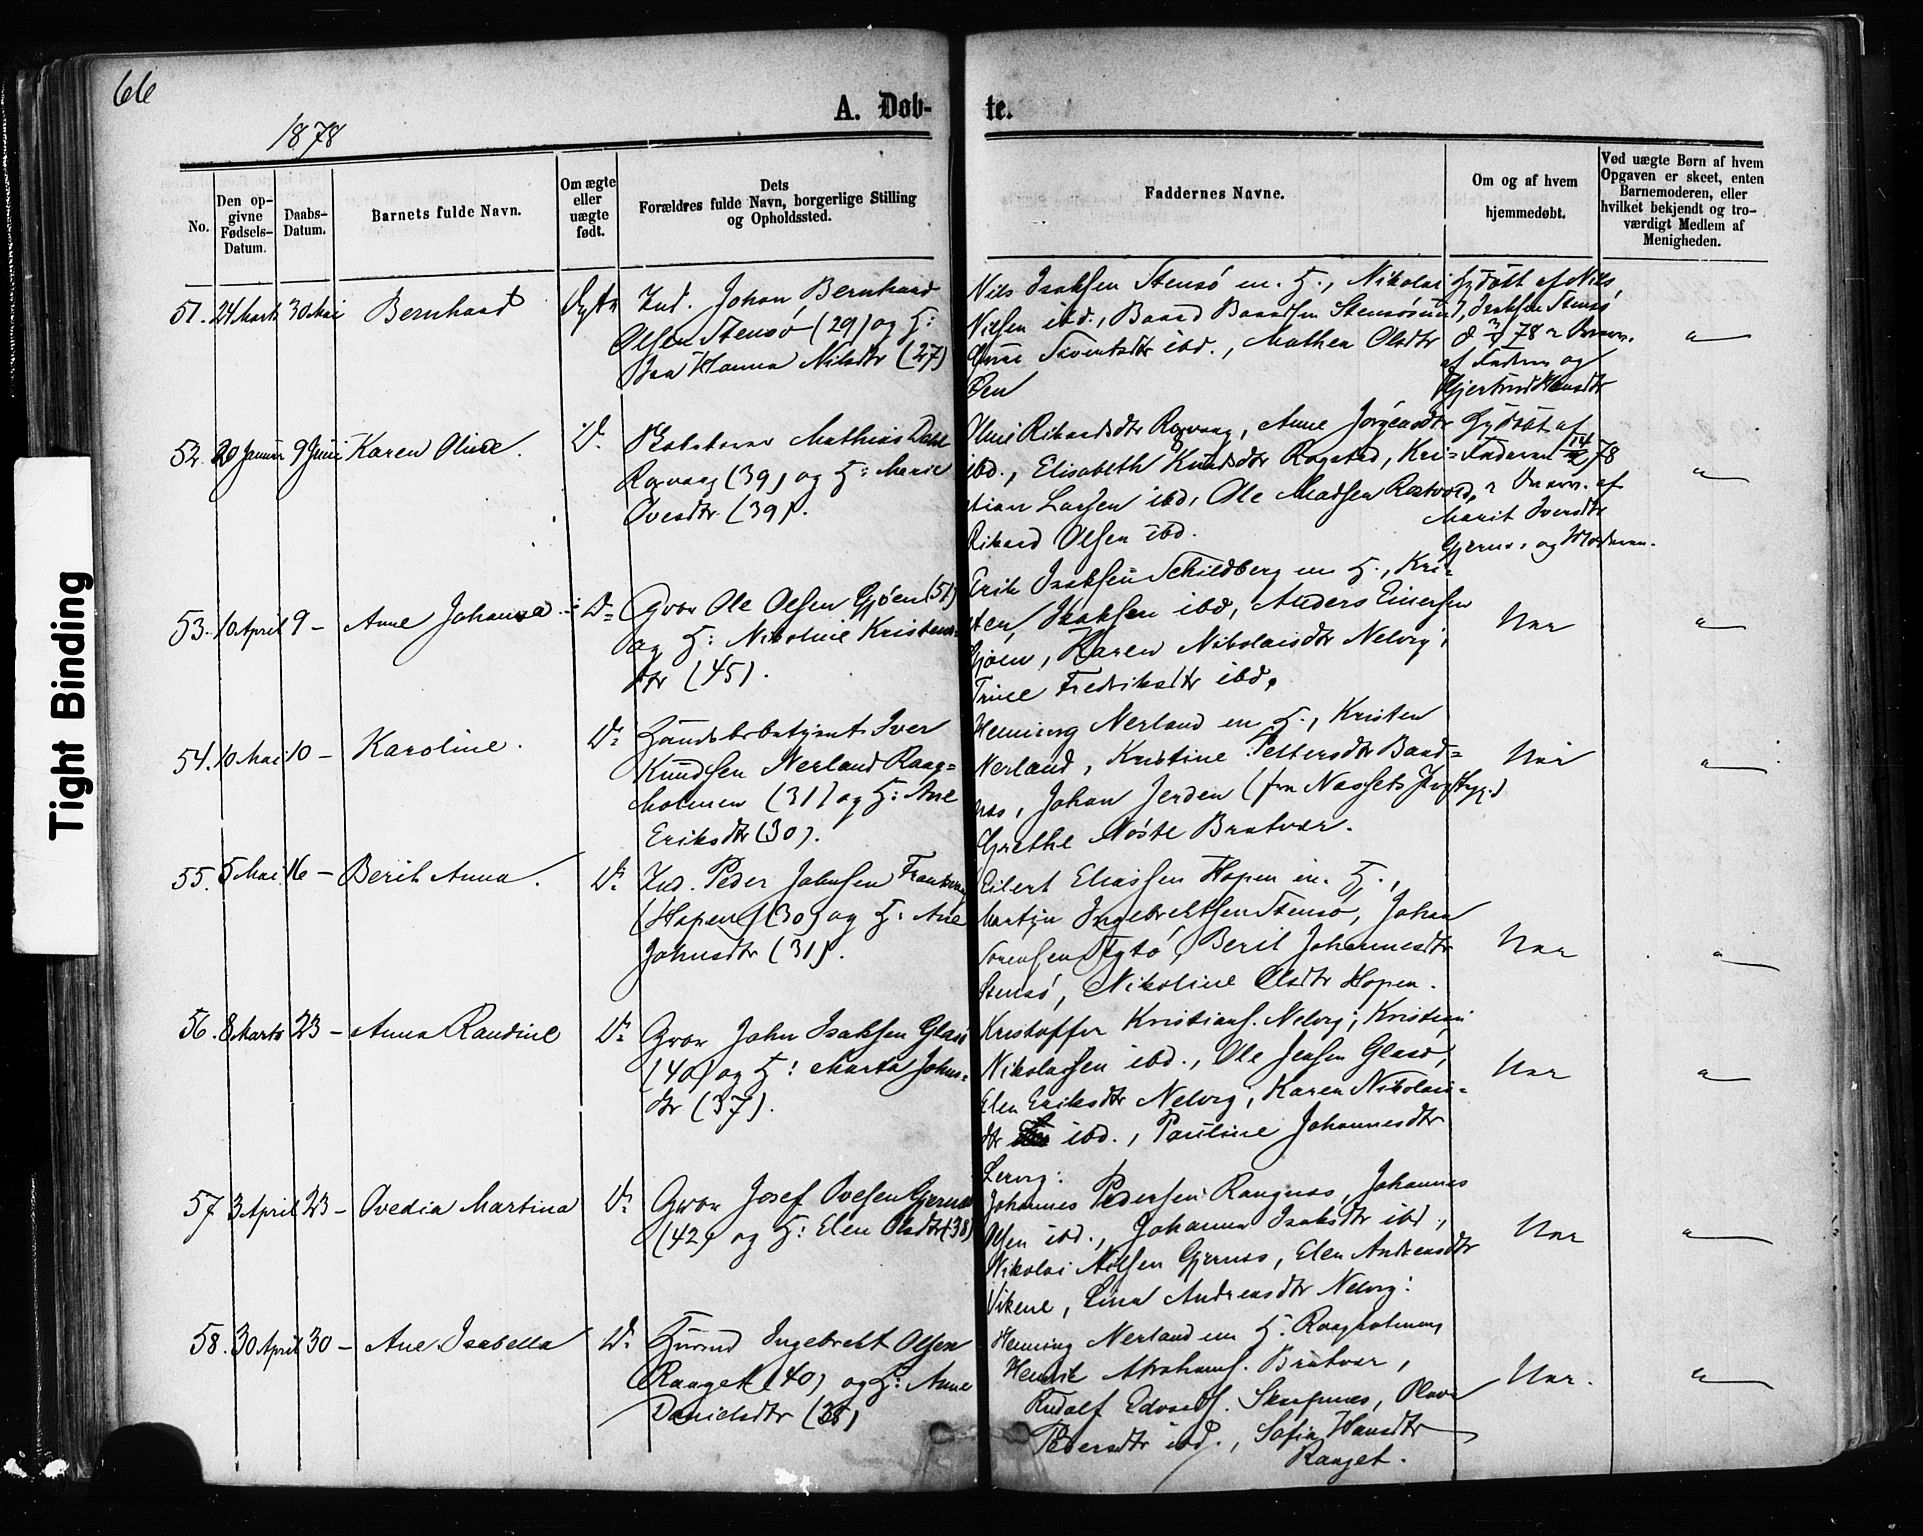 66
A. Døb-
te.
1878
No.
Den op-
givne
Fødsels-
Datum.
Daabs-
Datum.
Barnets fulde Navn.
Om ægte
eller
uægte
født.
Dets
Forældres fulde Navn, borgerlige Stilling
og Opholdssted.
Faddernes Navne.
Om og af hvem
hjemmedøbt.
Ved uægte Børn af hvem
Opgaven er skeet, enten
Barnemoderen, eller
hvilket bekjendt og tro-
værdigt Medlem af
Menigheden.
51. 24 Marts 30 Mai Bernhard Ægte Ind. Johan Bernhard
Olsen Stensø (29) og H:
Hanna Nilsdtr (27)
Nils Isaksen Stensø m. H., Nikolai
Nilsen ibd., Baard Baardsen Stensøsund,
Sivertsdtr ibd., Mathea Olsdtr
Øen
Hjdøbt af Nils
Isaksen Stensø
78
af Faderen og
Gjertrud Hansdtr
52. 20 Januar 9 Juni Karen Oline. D. Mathias Dahl
Rogvaag (39) og H: Marit
Ovesdtr (39).
Rikardsdtr Rogvaag, Anne Jørgensdtr
ibd., Elisabeth Knudsdtr Rogstad, Kri-
stian Larsen ibd, Ole Madsen
Rikard Olsen ibd.
Hjdøbt af
Faderen 14/2 78
af
Marit Iversdtr
Gjernes og Moderen.
53. 10 April 9 - Anne Johanna D= Gbr Ole Olsen Gjøen (51)
og H: Nikoline Kristens=
dtr (45).
Erik Isaksen Schildberg m H., Kri-
sten Isaksen ibd, Anders Einersen
Gjøen, Karen Nikolaisdtr Nelvig,
Trine Fredriksdtr ibd.
Nei
54. 10 Mai 10 - Karoline. D: Handelsbetjent Iver
Knudsen Nerland Raag=
holmen (31) og H: Ane
Eriksdtr (30).
Henning Nerland m H., Kristen
Nerland, Kristine Pettersdtr Baad=
nes, Johan Jerden (fra Nessets Prgj)
Grethe Nøste Bratvær.
Nei
55. 5 Mai 16 - Berit Anna. D: Ind. Peder Johnsen
(Hopen) (30) og H: Ane
Johnsdtr (31).
Eilert Eliassen Hopen m. H.,
Martin Ingebrektsen Stensø, Johan
Sørensen Flytø, Berit Johannesdtr
Stensø, Nikoline Olsdtr Hopen.
Nei
56. 8 Marts 23 - Anna Randine D: Gbr John Isaksen Glasø
(40) og H: Marta Johns=
dtr (37).
Kristoffer Kristians. Nelvig, Kristian
Nikolaisen ibd., Ole Jensen Glasø,
Elen Eriksdtr Nelvig, Karen Nikolais=
dtr ibd., Pauline Johannesdtr
Lervig.
Nei
57 3 April 23 - Ovedia Martina D: Gbr Josef Ovesen Gjernes
(42) og H: Elen Olsdtr (38)
Johannes Pedersen Raagnes, Johannes
Olsen ibd., Johanna Isaksdtr ibd.,
Nikolai Nilsen Gjernes, Elen Andreasdtr
Vikene, Lina Andreasdtr Nelvig.
Nei
58. 30 April 30 - Ane Isabella D. Husmd Ingebrekt Olsen
Raaget (40) og H: Anne
Danielsdtr (38)
Henning Nerland m H. Raagholmen,
Henrik Abrahams. Bratvær,
Rudolf Edvards. Skarpnes,
Pedersdtr ibd., Sofia Hansdtr
Raaget.
Nei.
Tight Binding